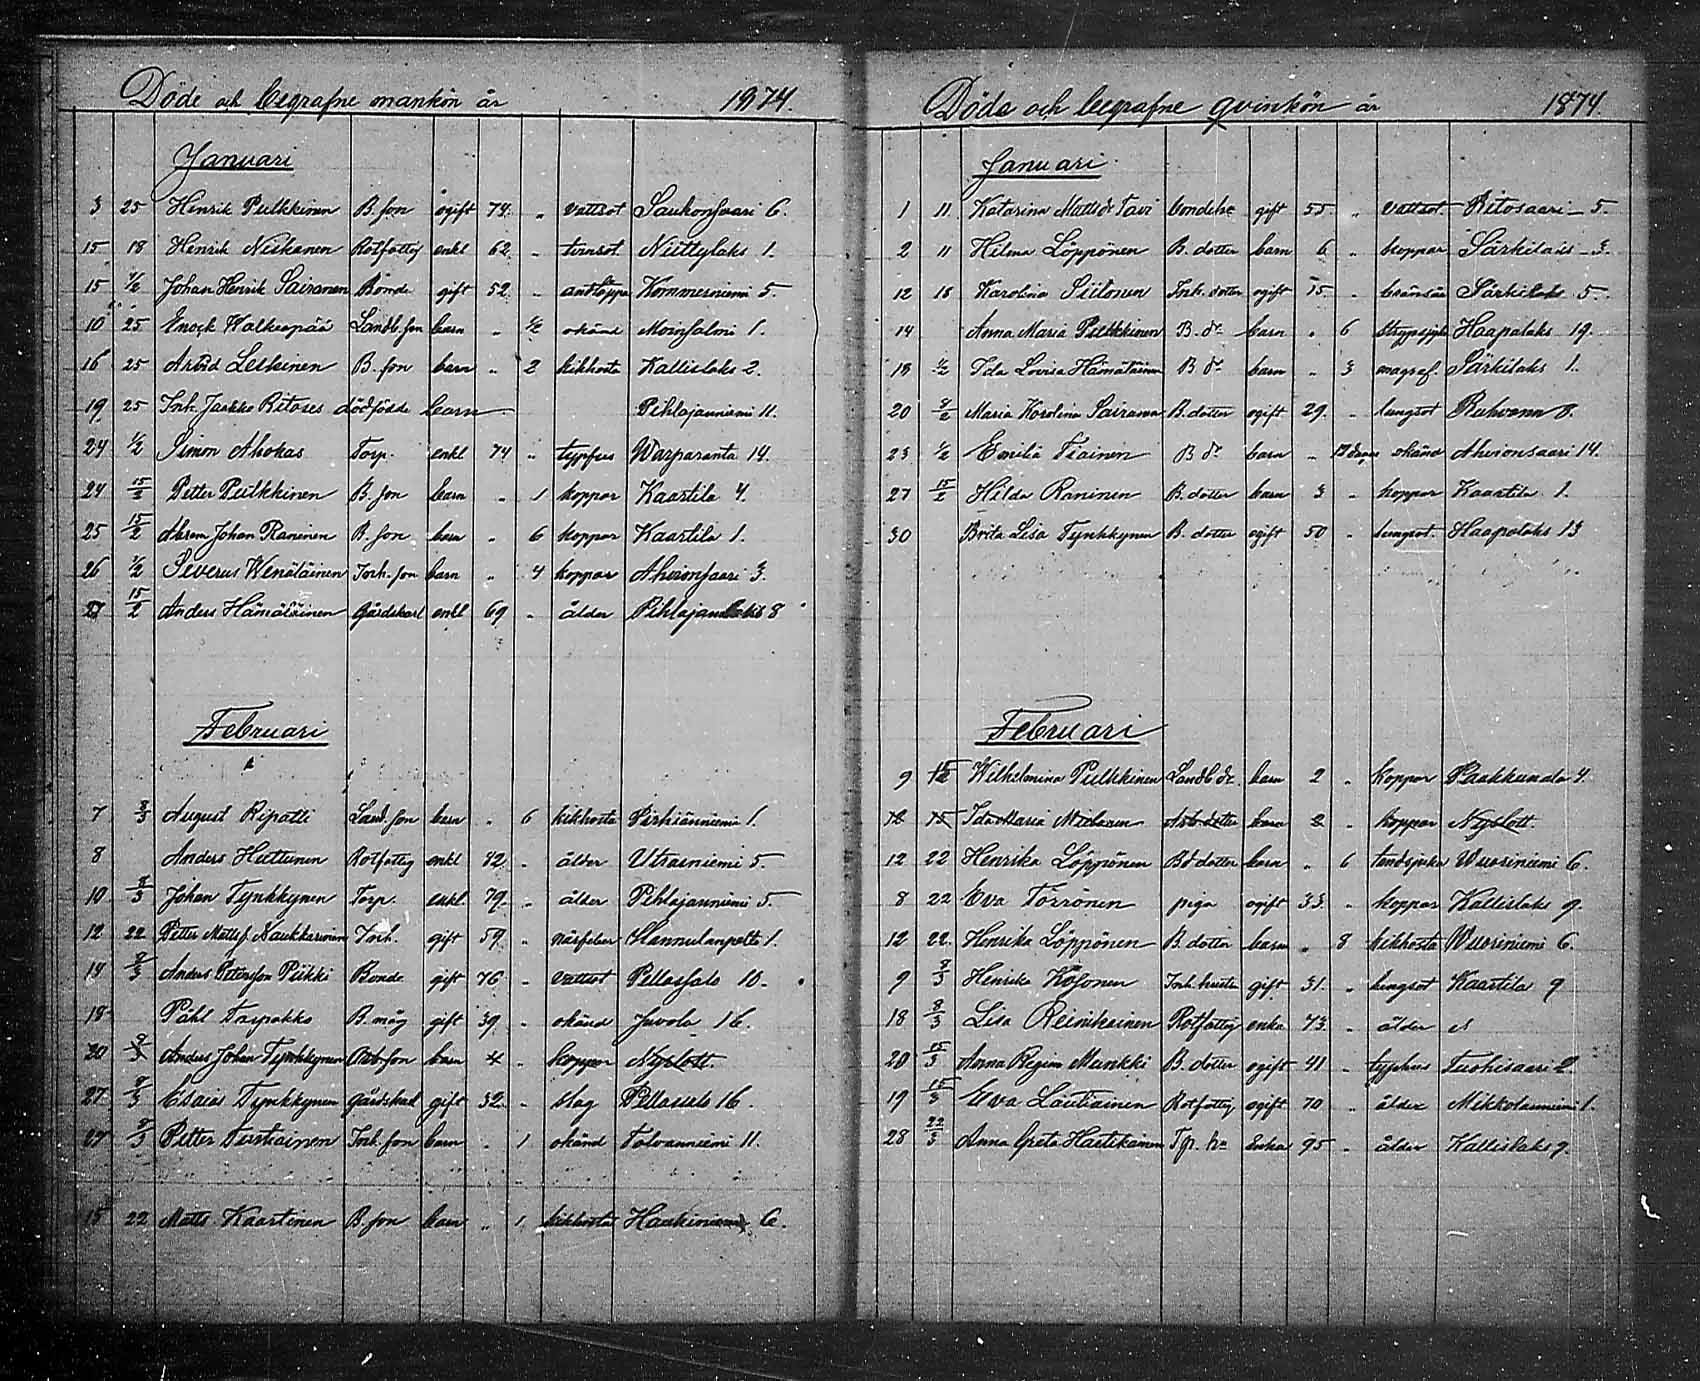 Döde och begrafne mankön år 1874.
Januari
3 25 Henrik Pulkkinen B. son ogift 74 " vattsot Saukonsaari 6.
15 18 Henrik Niskanen Rotfattig enkl 62 " tvinsot Niittylaks 1.
15 1/2 Johan Henrik Sairanen Bonde gift 52 " Kommerniemi 5.
10 25 Enock Valkeapää Landb. son barn " 1/2 okänd Moinsalmi 1.
16 25 Arvid Leskinen B. son barn " 2 kikhosta Kallislaks 2.
19 25 Inh. Jaakko Ritoses dödfödde barn Pihlajaniemi 11.
24 1/2 Simon Ahokas Torp. enkl 74 " typfus Warparanta 14.
24 15/2 Petter Pulkkinen B. son barn " 1 koppor Kaartila 4.
25 15/2 Abram Johan Raninen B. son barn " 6 koppor Kaartila 1.
26 1/2 Severus Wenäläinen Inh. son barn " 4 koppor Ahvionsaari 3.
27 15/2 Anders Hämäläinen Gårdskarl enkl 69 " ålder Pihlajanlaks 8
Februari
7 8/3 August Ripatti Land. son barn " 6 kikhosta Pirhiänniemi 1.
8 Anders Huttunen Rotfattig enkl 82 " ålder Utrasniemi 5.
10 8/3 Johan Tynkkynen Torp. enkl. 79. " ålder Pihlajaniemi 5.
12 22 Petter Matts s. Naukkarinen Inh. gift 59 " närfeber Hannulanpelto 1.
14 8/3 Anders Petersson Piikki Bonde gift 76 " vattsot Pellossalo 10.
18 Påhl Torpakko B. måg gift 39 " okänd Juvola 16.
20 8/3 Anders Johan Tynkkynen Arb. son barn 4 " koppor Nyslott.
27 8/3 Esaias Tynkkynen Gårdskarl gift 32 " slag Pellossalo 16.
27 8/3 Petter Turtiainen Inh. son barn " 1 okänd Tolvanniemi 11.
15 22 Matts Kaartinen B. son barn " 1 kikhosta Haukiniemi 6.
Döde och begrafne qvinkön år 1874.
Januari
1 11 Katarina Mattsdr Tavi bondehu gift 55 " vattsot Ritosaari 5.
2 11 Hilma Löppönen B. dotter barn 6 " koppor Särkilaks 3.
12 18 Karolina Siitonen Inh. dotter ogift 15 " Särkilaks 5.
14 Anna Maria Pulkkinen B. dr barn " 6 strypsjuka Haapalaks 19.
18 1/2 Ida Lovisa Hämäläinen B dr barn " 3 magref. Särkilaks 1.
20 8/2 Maria Karolina Sairanen B. dotter ogift 29. " lungsot Ruhvana 8.
23 1/2 Emilia Tiainen B dr barn " 17 dagar okänd Ahvionsaari 14.
27 15/2 Hilda Raninen B. dotter barn 3 " koppor Kaartila 1.
30 Brita Lisa Tynkkynen B. dotter ogift 50 " lungsot. Haapalaks 13
Februari
9 15/2 Wilhelmina Pulkkinen Landb dr. barn 2 " koppor Paakkunala 4.
12 15 Ida Maria Makonen Arb. dotter barn 2 " koppor Nyslott.
12 22 Henrika Löppönen B d dotter barn " 6 tandsjuka Wuoriniemi 6.
8 22 Eva Törrönen piga ogift 33. " koppor Kallislaks 9.
12 22. Henrika Löppönen B. dotter barn " 8 kikhosta Wuoriniemi 6.
9 8/3 Henrika Kosonen Inh. hustru gift 31. " lungsot Kaartila 9
18 8/3 Lisa Reinikainen Rotfattig enka 73. " ålder
20 15/3 Anna Regina Munkki B. dotter ogift 41 " typhus Tuohisaari 2.
19 15/3 Eva Lautiainen Rotfattig ogift 70 " ålder Mikkolanniemi 1.
28 22/3 Anna Greta Hartikainen Tp. hu Enka 95 " ålder Kallislaks 9.